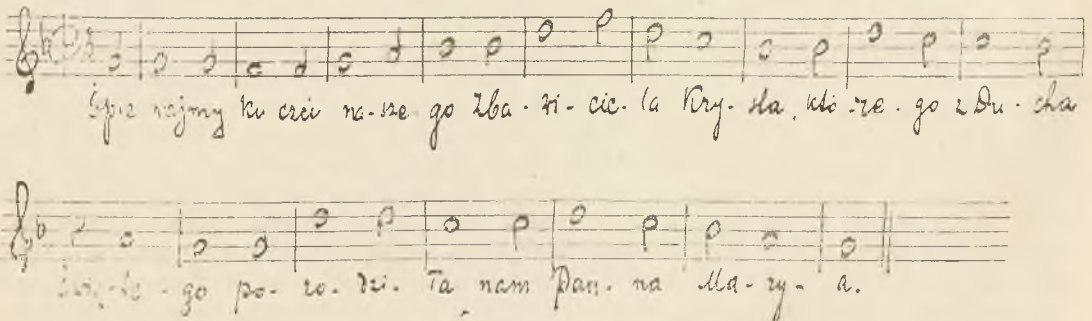 Śpie wajmy ku czci na-sze go Zba-wi-cie-la Kry-sta, któ-re-go z Du-cha
Świę-te-go po-ro-dzi-ła nam Pan-na Ma-ry-a.